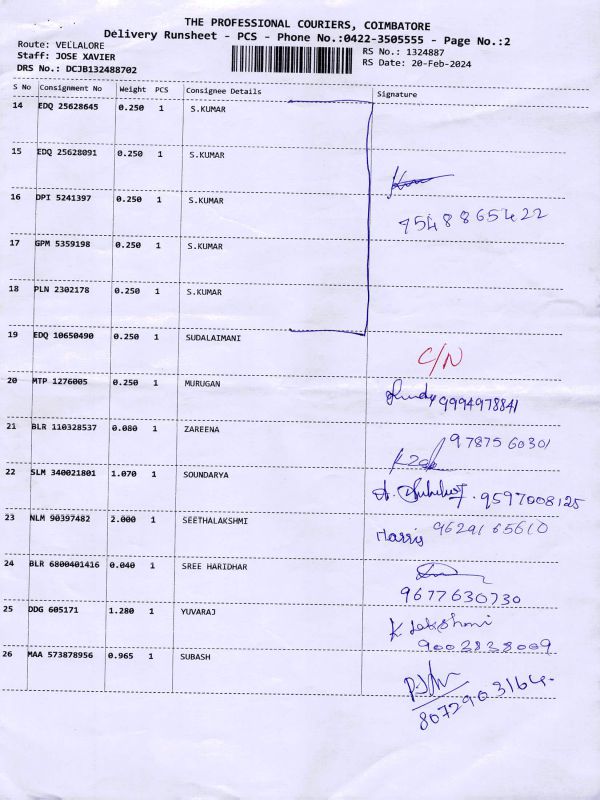 THE PROFESSIONAL COURIERS, COIMBATORE
Delivery Runsheet - PCS - Phone No.:0422-3505555 - Page No.:2
Route: VELLALORE
Staff: JOSE XAVIER
DRS No.: DCJB132488702
RS No.: 1324887
RS Date: 20-Feb-2024
S No Consignment No Weight PCS Consignee Details Signature
14 EDQ 25628645 0.250 1 S.KUMAR
15 EDQ 25628091 0.250 1 S.KUMAR
16 DPI 5241397 0.250 1 S.KUMAR
7548865422
17 GPM 5359198 0.250 1 S.KUMAR
18 PLN 2302178 0.250 1 S.KUMAR
19 EDQ 10650490 0.250 1 SUDALAIMANI C/N
20 MTP 1276005 0.250 1 MURUGAN 9994978841
21 BLR 110328537 0.080 1 ZAREENA 9787560301
22 SLM 340021801 1.070 1 SOUNDARYA 9597008125
23 NLM 90397482 2.000 1 SEETHALAKSHMI Harris 9629165610
24 BLR 6800401416 0.040 1 SREE HARIDHAR
9677630730
25 DDG 605171 1.280 1 YUVARAJ K Lakshmi
9002838009
26 MAA 573878956 0.965 1 SUBASH
8072903164